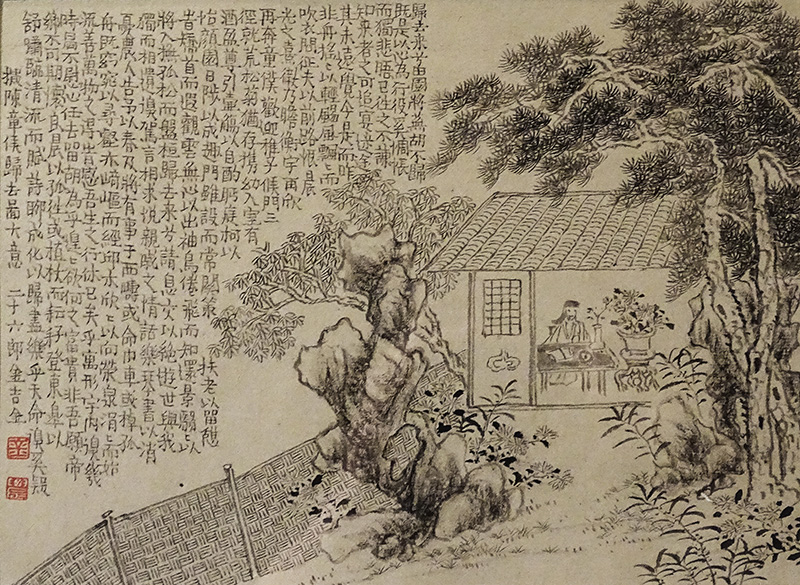 歸去來兮田園將蕪胡不歸
既是以心為形役奚惆悵
而獨悲悟已往之不諫
知來者之可追寔迷途
其未遠覺今是而昨
非舟搖搖以輕颺風飄飄而
吹衣問征夫以前路恨晨
光之熹微乃瞻衡宇再欣
再奔童僕歡迎稚子候門三
徑就荒松菊猶存攜幼入室有
酒盈尊引壺觴以自酌眄庭柯以
怡顏園日涉以成趣門雖設而常關策扶老以留憩
時矯首而遐觀雲無心以出岫鳥倦飛而知還景翳翳以
將入撫孤松而盤桓歸去來兮請息交以絕遊世與我
獨而相遺復駕言相求悅親戚之情話樂琴書以消
憂農人告予以春及將有事于西疇或命巾車或棹孤
舟既窈窕以尋壑亦崎嶇而經邱木欣欣以向榮泉涓涓而始
流善萬物之得時感吾生之行休已矣乎寓形宇內復幾
時曷不委心任去留胡為乎遑遑欲何之富貴非吾願帝
鄉不可期懷良辰以孤往或植杖而耘耔登東皋以
舒嘯臨清流而賦詩聊乘化以歸盡樂乎天命復奚疑
陳童侯歸去圖大意 二十六郎金吉金